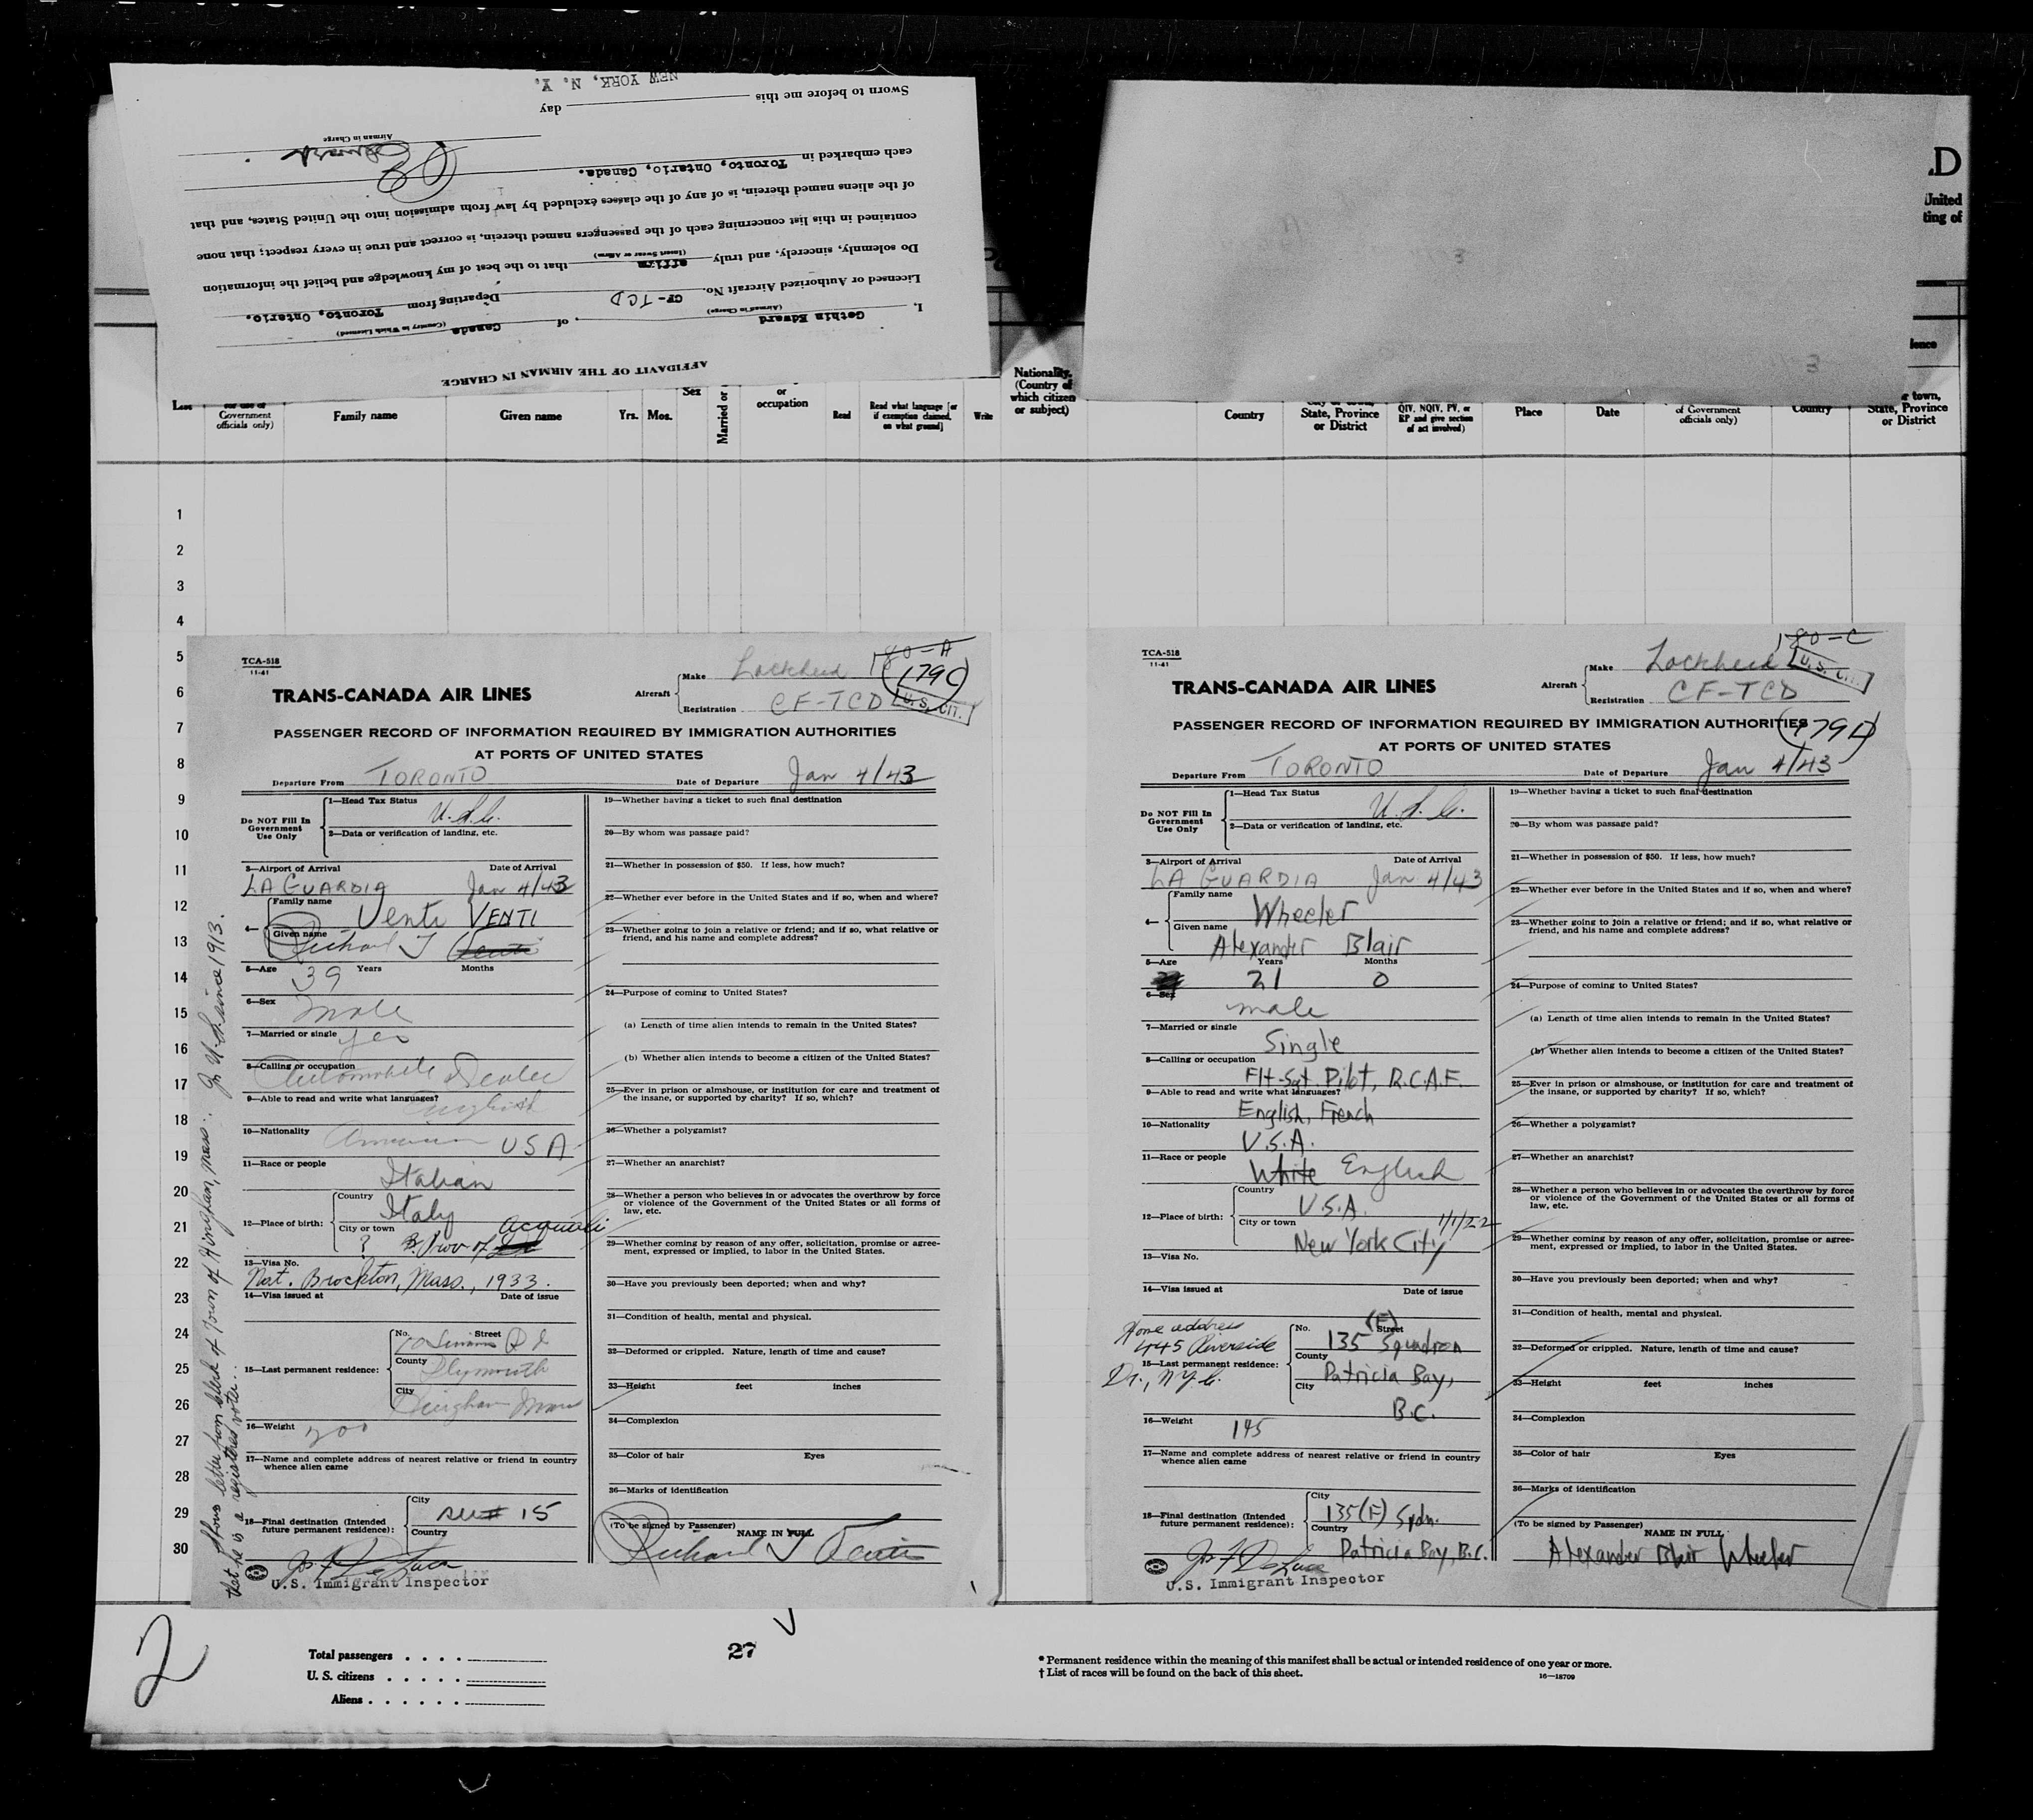 AFFIDAVIT OF THE AIRMAN IN CHARGE
I, Gethin Edward, of Canada
(Airman in Charge) (Country in Which Licensed)
Licensed or Authorized Aircraft No. CF-TCD Departing from Toronto, Ontario.
Do solemnly, sincerely, and truly affirm that to the best of my knowledge and belief the information
(Insert Swear or Affirm)
contained in this list concerning each of the passengers named therein, is correct and true in every respect; that none
of the aliens named therein, is of any of the classes excluded by law from admission into the United States, and that
each embarked in Toronto, Ontario, Canada.
Airman in Charge
Sworn to before me this day
NEW YORK, N. Y.
.D
United
ting of
lence
Government
officials only)
Family name
Given name
Yrs. Mos.
Sex
Married or
or
occupation
Read
Read what language [or
if exemption claimed,
on what ground]
Write
Nationality.
(Country of
which citizen
or subject)
Country
State, Province
or District
QIV, NQIV, PV, or
RP and give section
of act involved)
Place
Date
of Government
officials only)
Country
r town,
State, Province
or District
1
2
3
4
5
6
7
8
9
10
11
12
13
14
15
16
17
18
19
20
21
22
23
24
25
26
27
28
29
30
TCA-518
11-41
180-A
179C
U. S. CIT.
TRANS-CANADA AIR LINES
Aircraft Make Lockheed
Registration CF-TCD
PASSENGER RECORD OF INFORMATION REQUIRED BY IMMIGRATION AUTHORITIES
AT PORTS OF UNITED STATES
Departure From TORONTO Date of Departure Jan 4/43
Do NOT Fill In
Government
Use Only
1—Head Tax Status U.S.C.
2—Data or verification of landing, etc.
3—Airport of Arrival Date of Arrival
LA GUARDIA Jan 4/43
4— Family name Venti VENTI
Given name Richard J Venti
5—Age 39 Years Months
6—Sex Male
7—Married or single yes
8—Calling or occupation
Automobile Dealer
9—Able to read and write what languages? English
10—Nationality American USA
11—Race or people Italian
12—Place of birth: Country Italy
City or town ? Prov of
13—Visa No.
Nat. Brockton, Mass., 1933.
14—Visa issued at Date of issue
15—Last permanent residence: No. Street Rd
County Plymouth
City Hingham Mass
16—Weight 200
17—Name and complete address of nearest relative or friend in country
whence alien came
18—Final destination (Intended
future permanent residence): City see # 15
Country
U.S. Immigrant Inspector
Shows letter from clerk of Town of Hingham, Mass.: In U.S. since 1913.
that he is a registered voter..
19—Whether having a ticket to such final destination
20—By whom was passage paid?
21—Whether in possession of $50. If less, how much?
22—Whether ever before in the United States and if so, when and where?
23—Whether going to join a relative or friend; and if so, what relative or
friend, and his name and complete address?
24—Purpose of coming to United States?
(a) Length of time alien intends to remain in the United States?
(b) Whether alien intends to become a citizen of the United States?
25—Ever in prison or almshouse, or institution for care and treatment of
the insane, or supported by charity? If so, which?
26—Whether a polygamist?
27—Whether an anarchist?
28—Whether a person who believes in or advocates the overthrow by force
or violence of the Government of the United States or all forms of
law, etc.
29—Whether coming by reason of any offer, solicitation, promise or agree-
ment, expressed or implied, to labor in the United States.
30—Have you previously been deported; when and why?
31—Condition of health, mental and physical.
32—Deformed or crippled. Nature, length of time and cause?
33—Height feet inches
34—Complexion
35—Color of hair Eyes
36—Marks of identification
(To be signed by Passenger) NAME IN FULL
Richard J Venti
TCA-518
11-41
180-C
U. S. CIT.
TRANS-CANADA AIR LINES
Aircraft Make Lockheed
Registration CF-TCD
PASSENGER RECORD OF INFORMATION REQUIRED BY IMMIGRATION AUTHORITIES
179D
AT PORTS OF UNITED STATES
Departure From TORONTO Date of Departure Jan 4/43
Do NOT Fill In
Government
Use Only
1—Head Tax Status U.S.C.
2—Data or verification of landing, etc.
3—Airport of Arrival Date of Arrival
LA GUARDIA Jan 4/43
4— Family name Wheeler
Given name Alexander Blair
5—Age 21 Years 0 Months
6—Sex male
7—Married or single
Single
8—Calling or occupation
Flt-Sgt. Pilot, R.C.A.F.
9—Able to read and write what languages?
English, French
10—Nationality U.S.A.
11—Race or people White English
12—Place of birth: Country U.S.A.
City or town 1/1/22
New York City
13—Visa No.
14—Visa issued at Date of issue
Home address
445 Riverside
Dr., N.Y.C.
15—Last permanent residence: No. Street 135 (F) Squadron
County Patricia Bay,
City B.C.
16—Weight 145
17—Name and complete address of nearest relative or friend in country
whence alien came
18—Final destination (Intended
future permanent residence): City 135(F) Sqdn.
Country Patricia Bay, B.C.
U.S. Immigrant Inspector
19—Whether having a ticket to such final destination
20—By whom was passage paid?
21—Whether in possession of $50. If less, how much?
22—Whether ever before in the United States and if so, when and where?
23—Whether going to join a relative or friend; and if so, what relative or
friend, and his name and complete address?
24—Purpose of coming to United States?
(a) Length of time alien intends to remain in the United States?
(b) Whether alien intends to become a citizen of the United States?
25—Ever in prison or almshouse, or institution for care and treatment of
the insane, or supported by charity? If so, which?
26—Whether a polygamist?
27—Whether an anarchist?
28—Whether a person who believes in or advocates the overthrow by force
or violence of the Government of the United States or all forms of
law, etc.
29—Whether coming by reason of any offer, solicitation, promise or agree-
ment, expressed or implied, to labor in the United States.
30—Have you previously been deported; when and why?
31—Condition of health, mental and physical.
32—Deformed or crippled. Nature, length of time and cause?
33—Height feet inches
34—Complexion
35—Color of hair Eyes
36—Marks of identification
(To be signed by Passenger) NAME IN FULL
Alexander Blair Wheeler
2
Total passengers . . . .
U. S. citizens . . . . .
Aliens . . . . . .
27
* Permanent residence within the meaning of this manifest shall be actual or intended residence of one year or more.
† List of races will be found on the back of this sheet.
16—18709